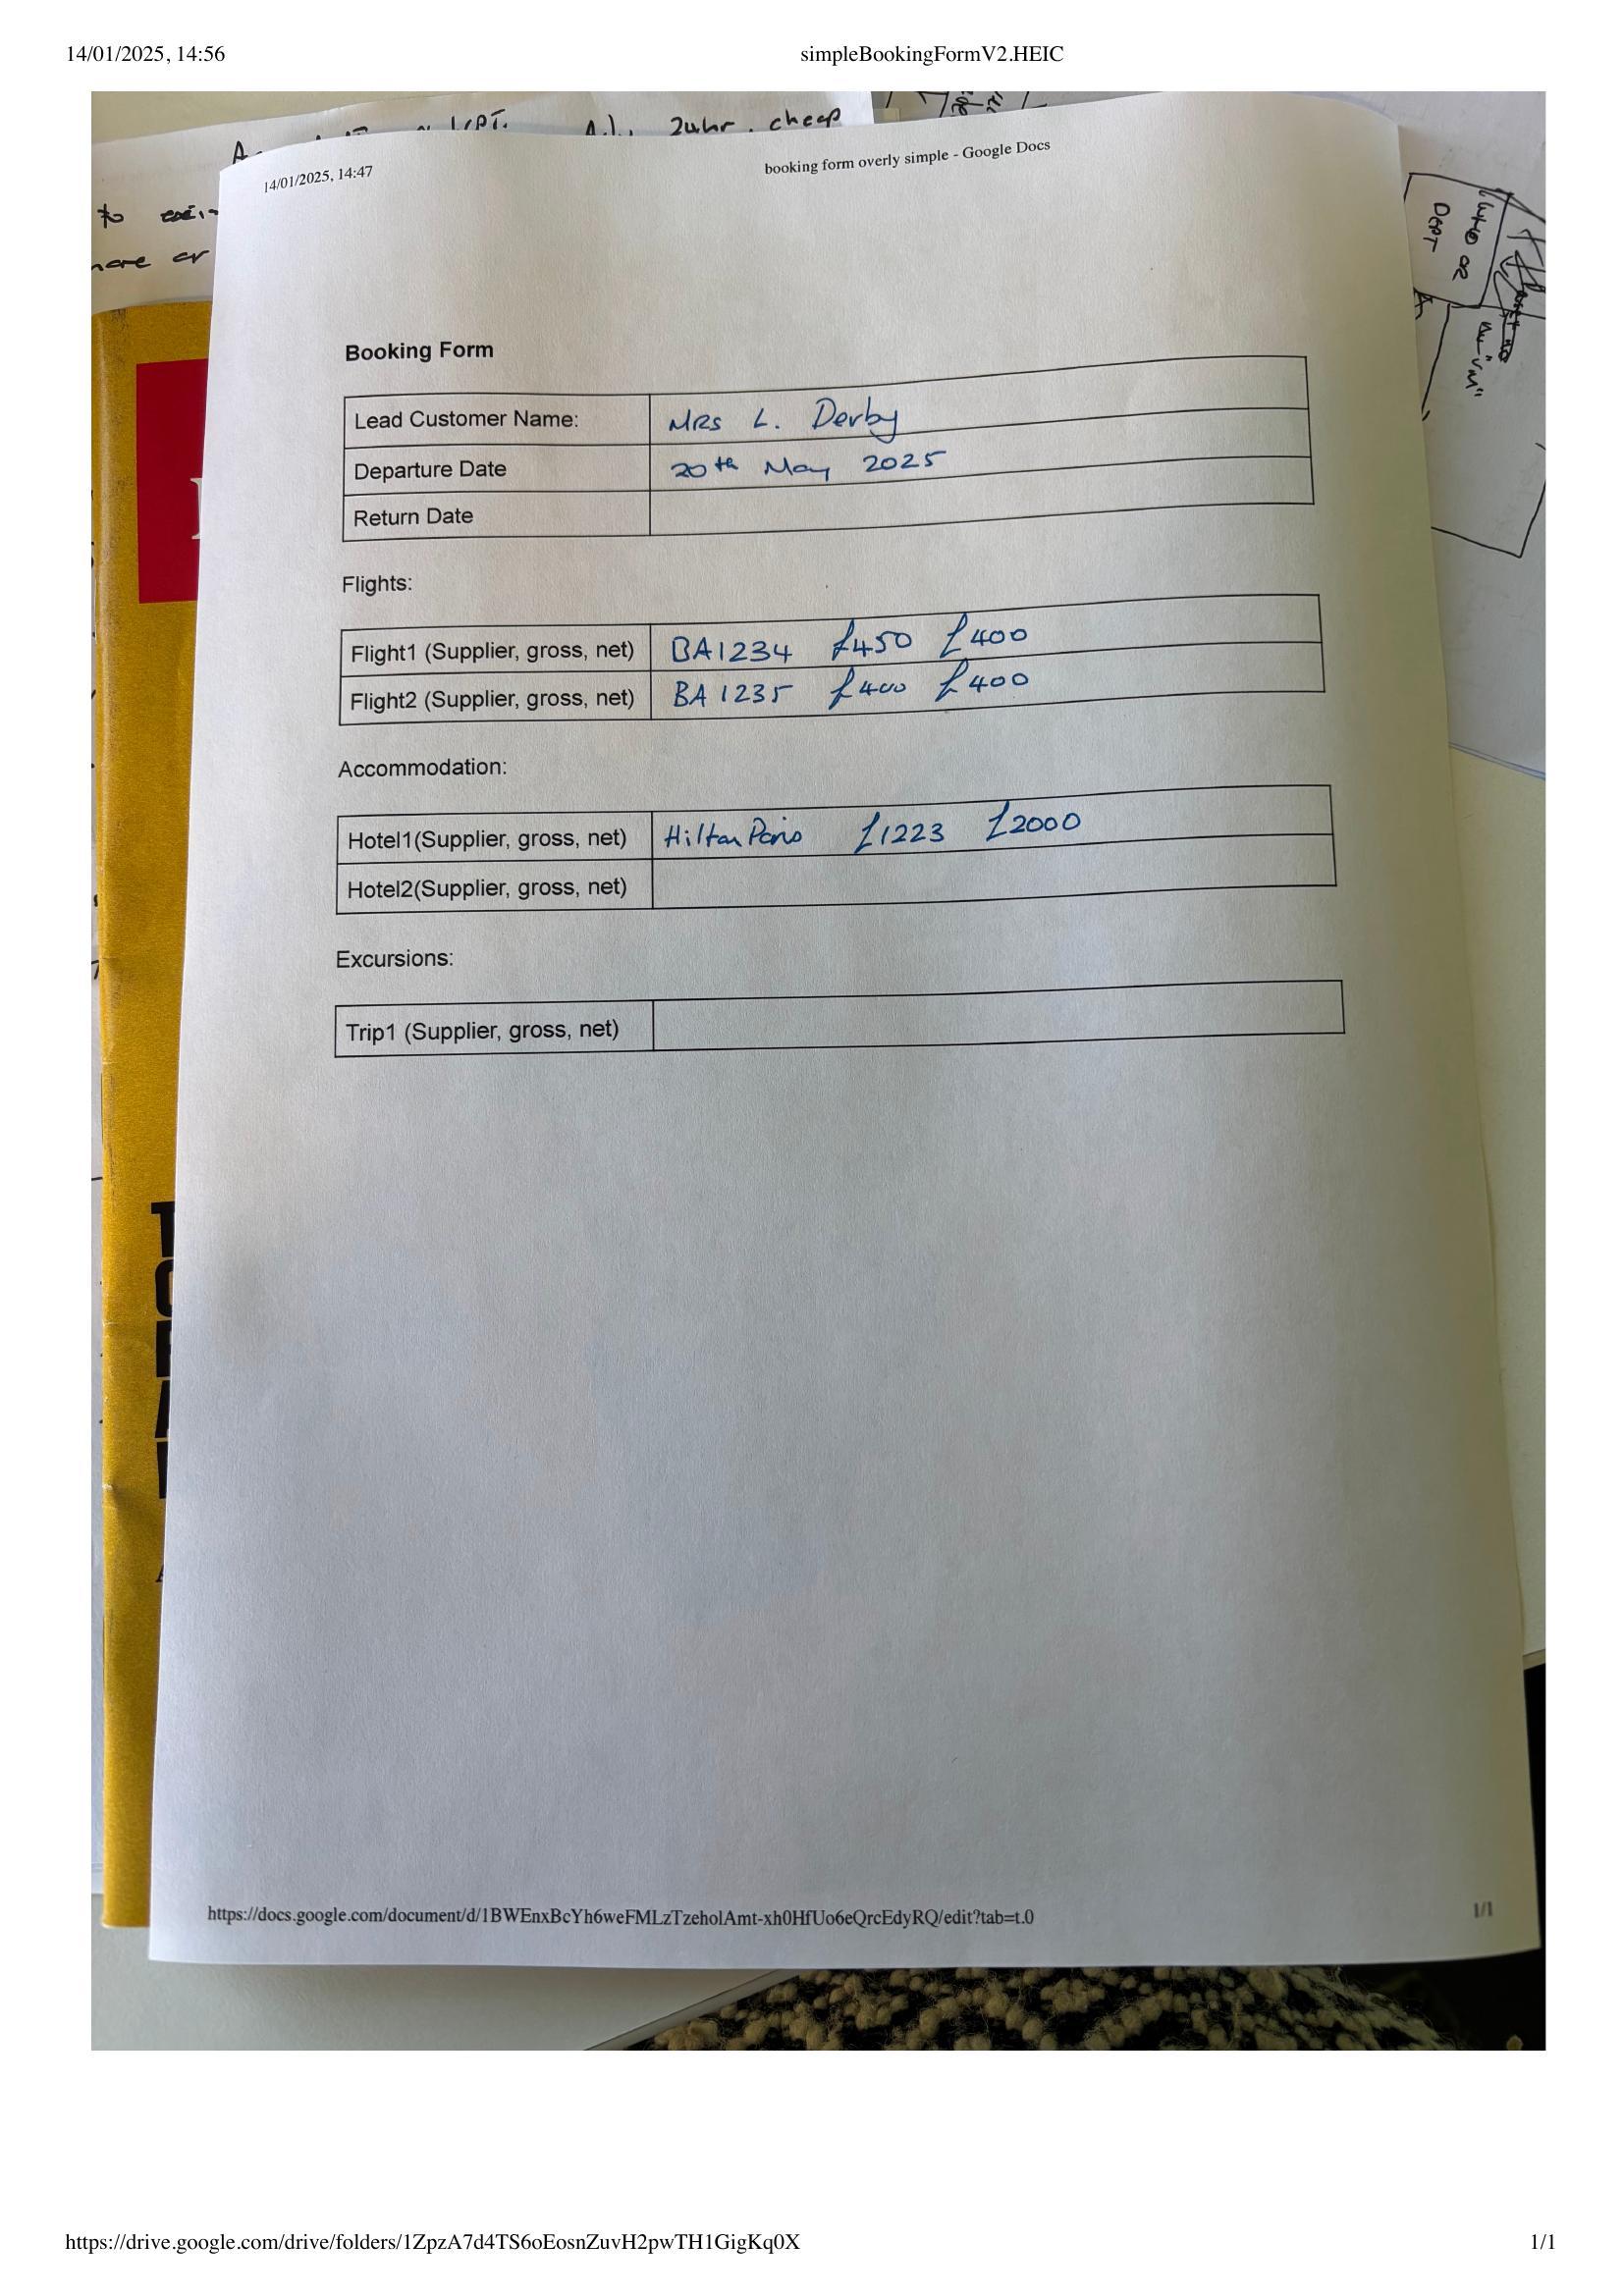 14/01/2025, 14:56 simpleBookingFormV2.HEIC
2uhr. cheap
14/01/2025, 14:47 booking form overly simple - Google Docs
to
or
DEPT
Booking Form
Lead Customer Name: MRS L. Derby
Departure Date 20th May 2025
Return Date
Flights:
Flight1 (Supplier, gross, net) BA1234 £450 £400
Flight2 (Supplier, gross, net) BA 1235 £400 £400
Accommodation:
Hotel1(Supplier, gross, net) Hilton Paris £1223 £2000
Hotel2(Supplier, gross, net)
Excursions:
Trip1 (Supplier, gross, net)
https://docs.google.com/document/d/1BWEnxBcYh6weFMLzTzeholAmt-xh0HfUo6eQrcEdyRQ/edit?tab=t.0 1/1
https://drive.google.com/drive/folders/1ZpzA7d4TS6oEosnZuvH2pwTH1GigKq0X 1/1